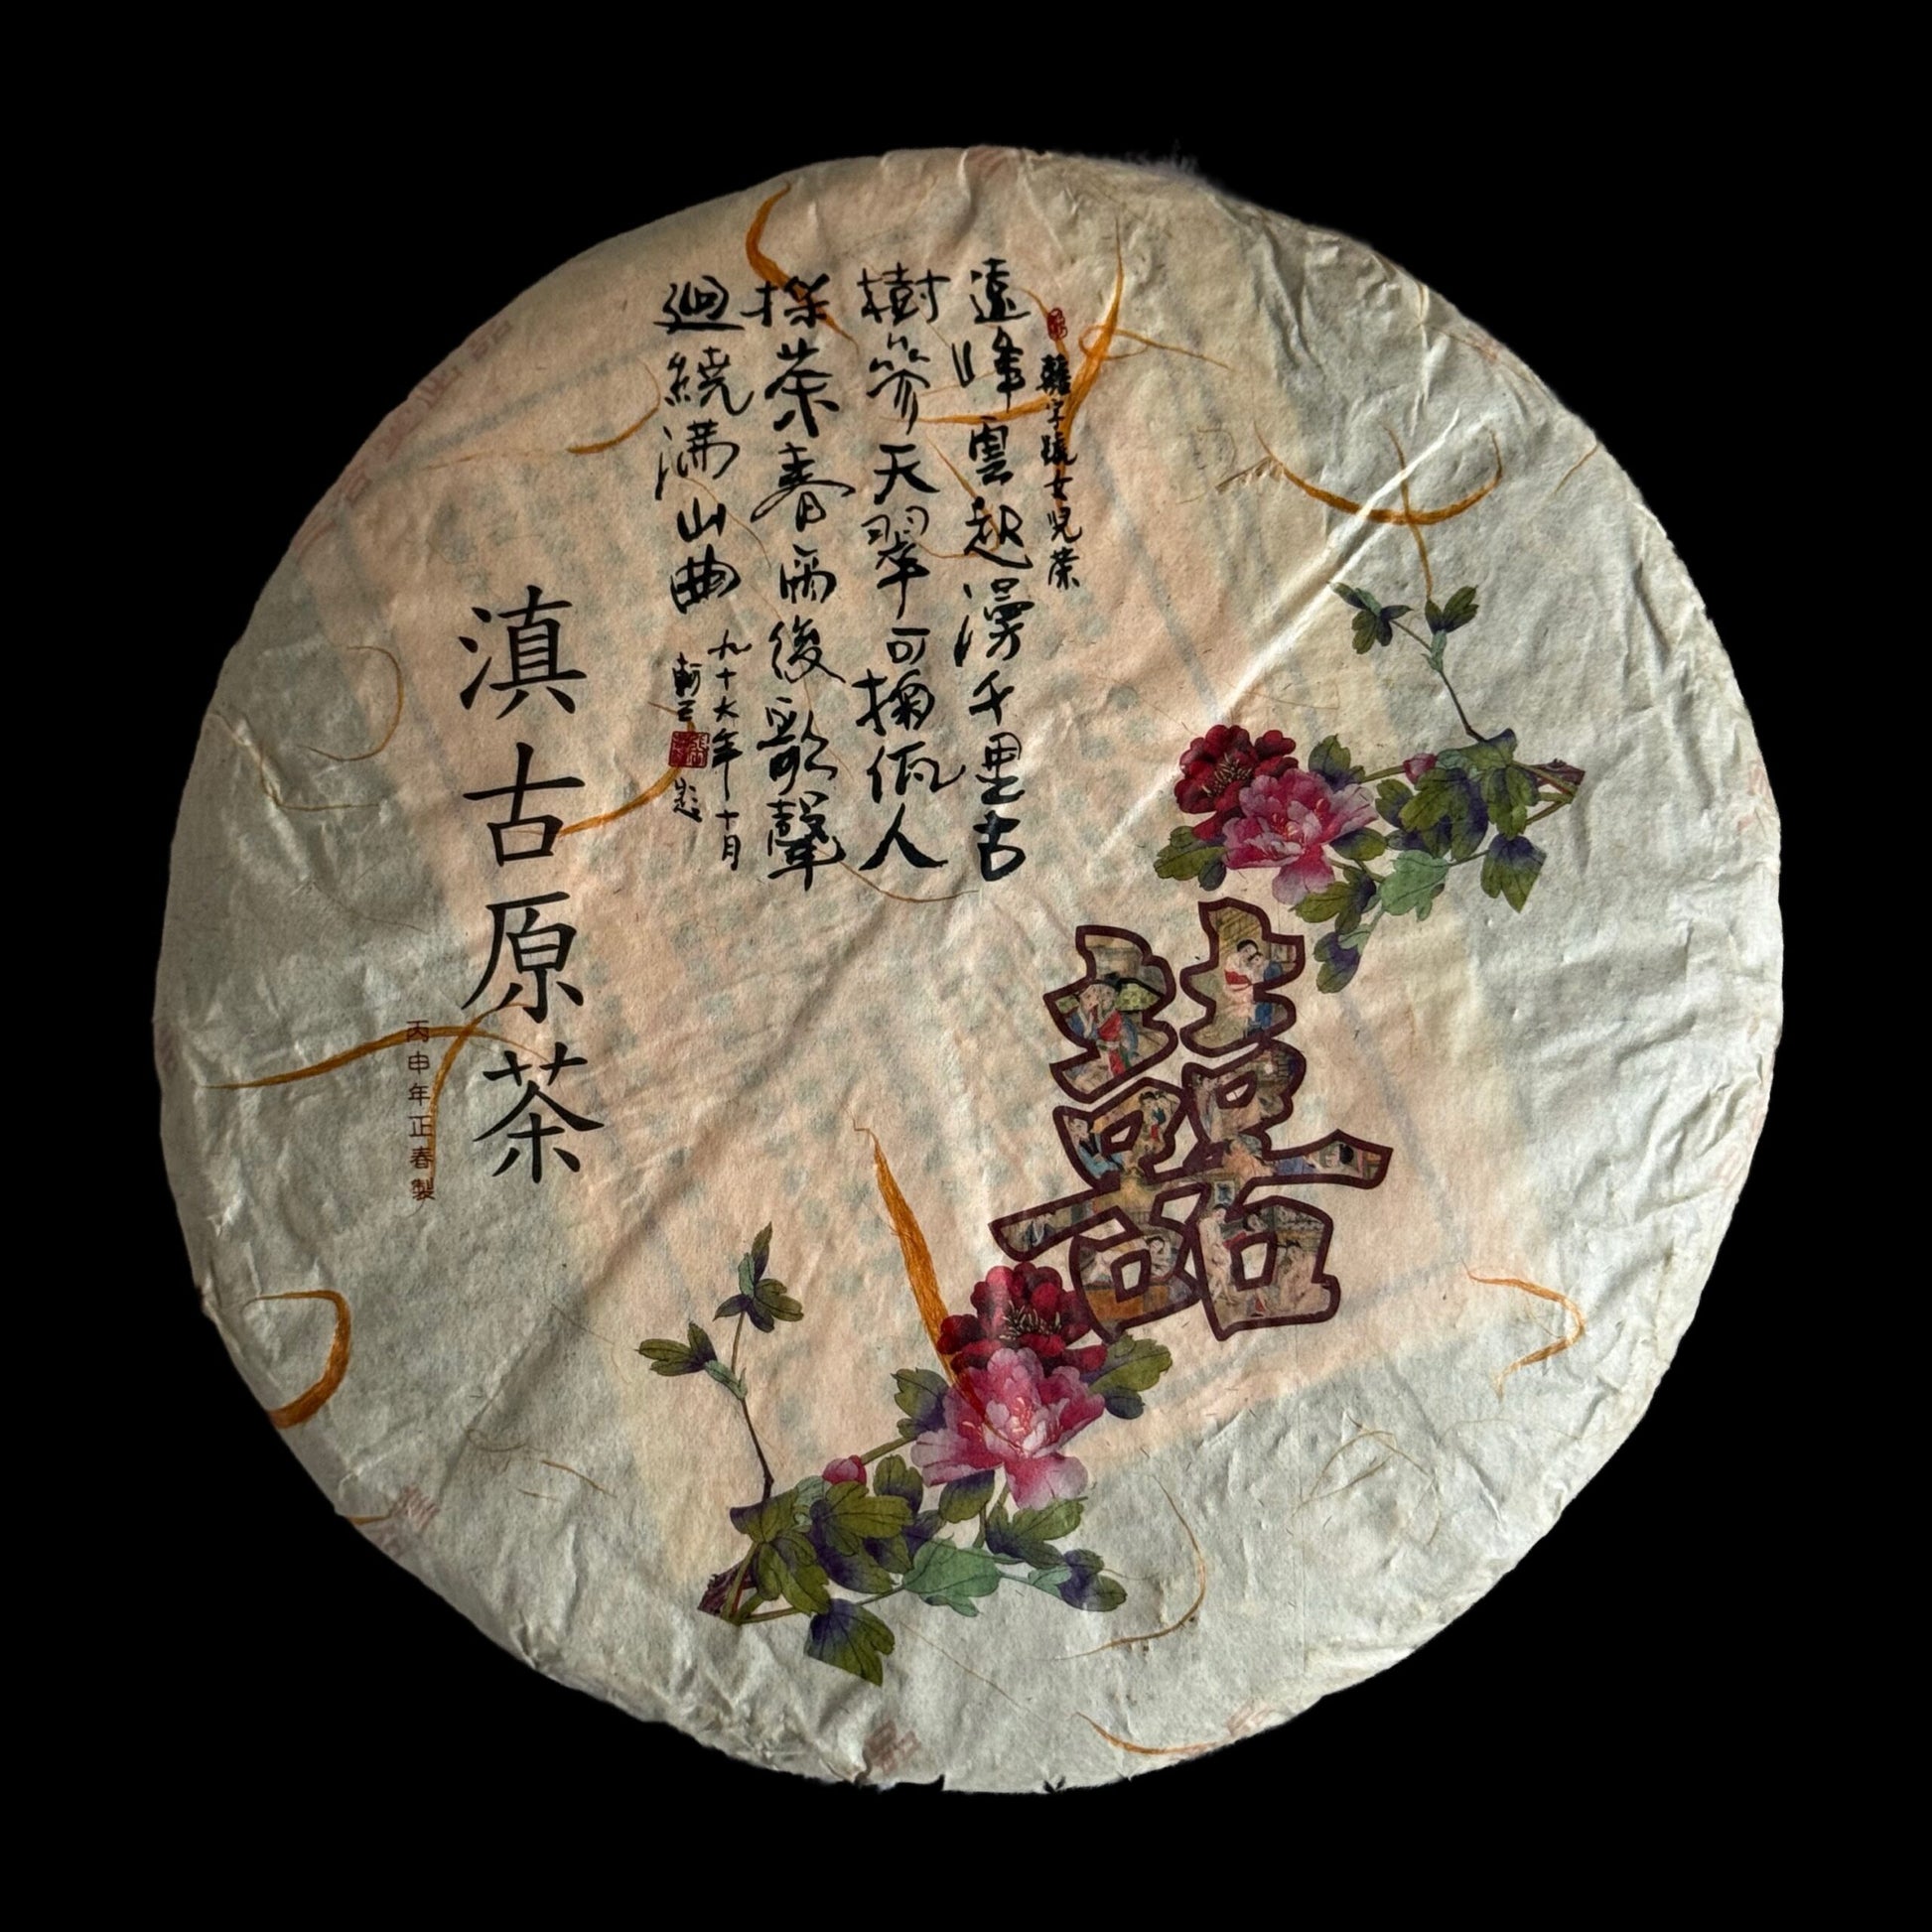 囍字號女兒茶
遠峰雲起漫千里古
樹參天翠可掬佤人
採茶春雨後歌聲
迴繞滿山曲
九十六年十月
題
囍
滇古原茶
丙申年正春製